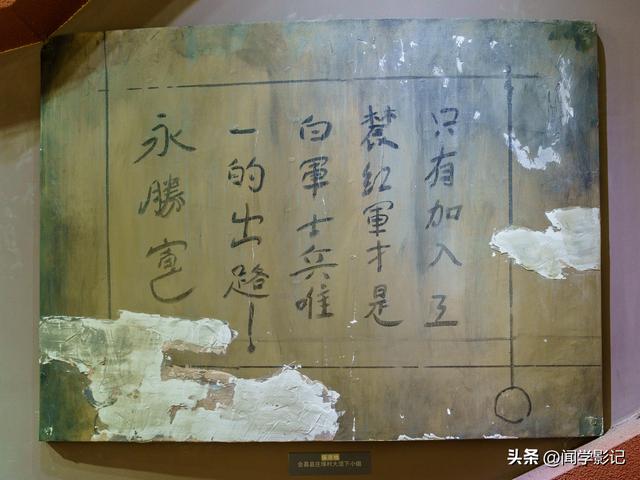 只有加入工
農紅軍才是
白軍士兵唯
一的出路！
永勝宣
会昌县庄埠村大活下小组
头条 @闻学影记